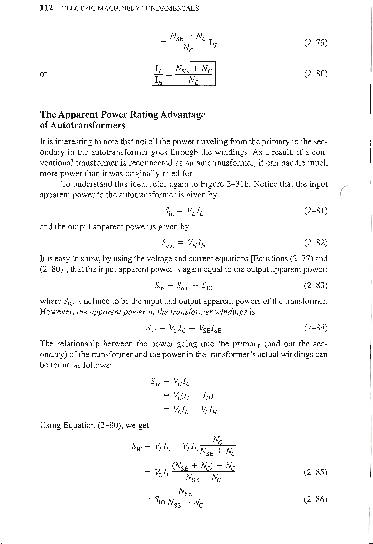 112 ELECTRIC MACHINERY FUNDAMENTALS
= (N_SE + N_C)/N_C I_H (2–79)
or I_L/I_H = (N_SE + N_C)/N_C (2–80)
The Apparent Power Rating Advantage
of Autotransformers
It is interesting to note that not all the power traveling from the primary to the sec-
ondary in the autotransformer goes through the windings. As a result, if a con-
ventional transformer is reconnected as an autotransformer, it can handle much
more power than it was originally rated for.
To understand this idea, refer again to Figure 2–31b. Notice that the input
apparent power to the autotransformer is given by
S_in = V_L I_L (2–81)
and the output apparent power is given by
S_out = V_H I_H (2–82)
It is easy to show, by using the voltage and current equations [Equations (2–77) and
(2–80)], that the input apparent power is again equal to the output apparent power:
S_in = S_out = S_IO (2–83)
where S_IO is defined to be the input and output apparent powers of the transformer.
However, the apparent power in the transformer windings is
S_W = V_C I_C = V_SE I_SE (2–84)
The relationship between the power going into the primary (and out the sec-
ondary) of the transformer and the power in the transformer's actual windings can
be found as follows:
S_W = V_C I_C
= V_L(I_L – I_H)
= V_L I_L – V_L I_H
Using Equation (2–80), we get
S_W = V_L I_L – V_L I_L N_C/(N_SE + N_C)
= V_L I_L ((N_SE + N_C) – N_C)/(N_SE + N_C) (2–85)
= S_IO N_SE/(N_SE + N_C) (2–86)